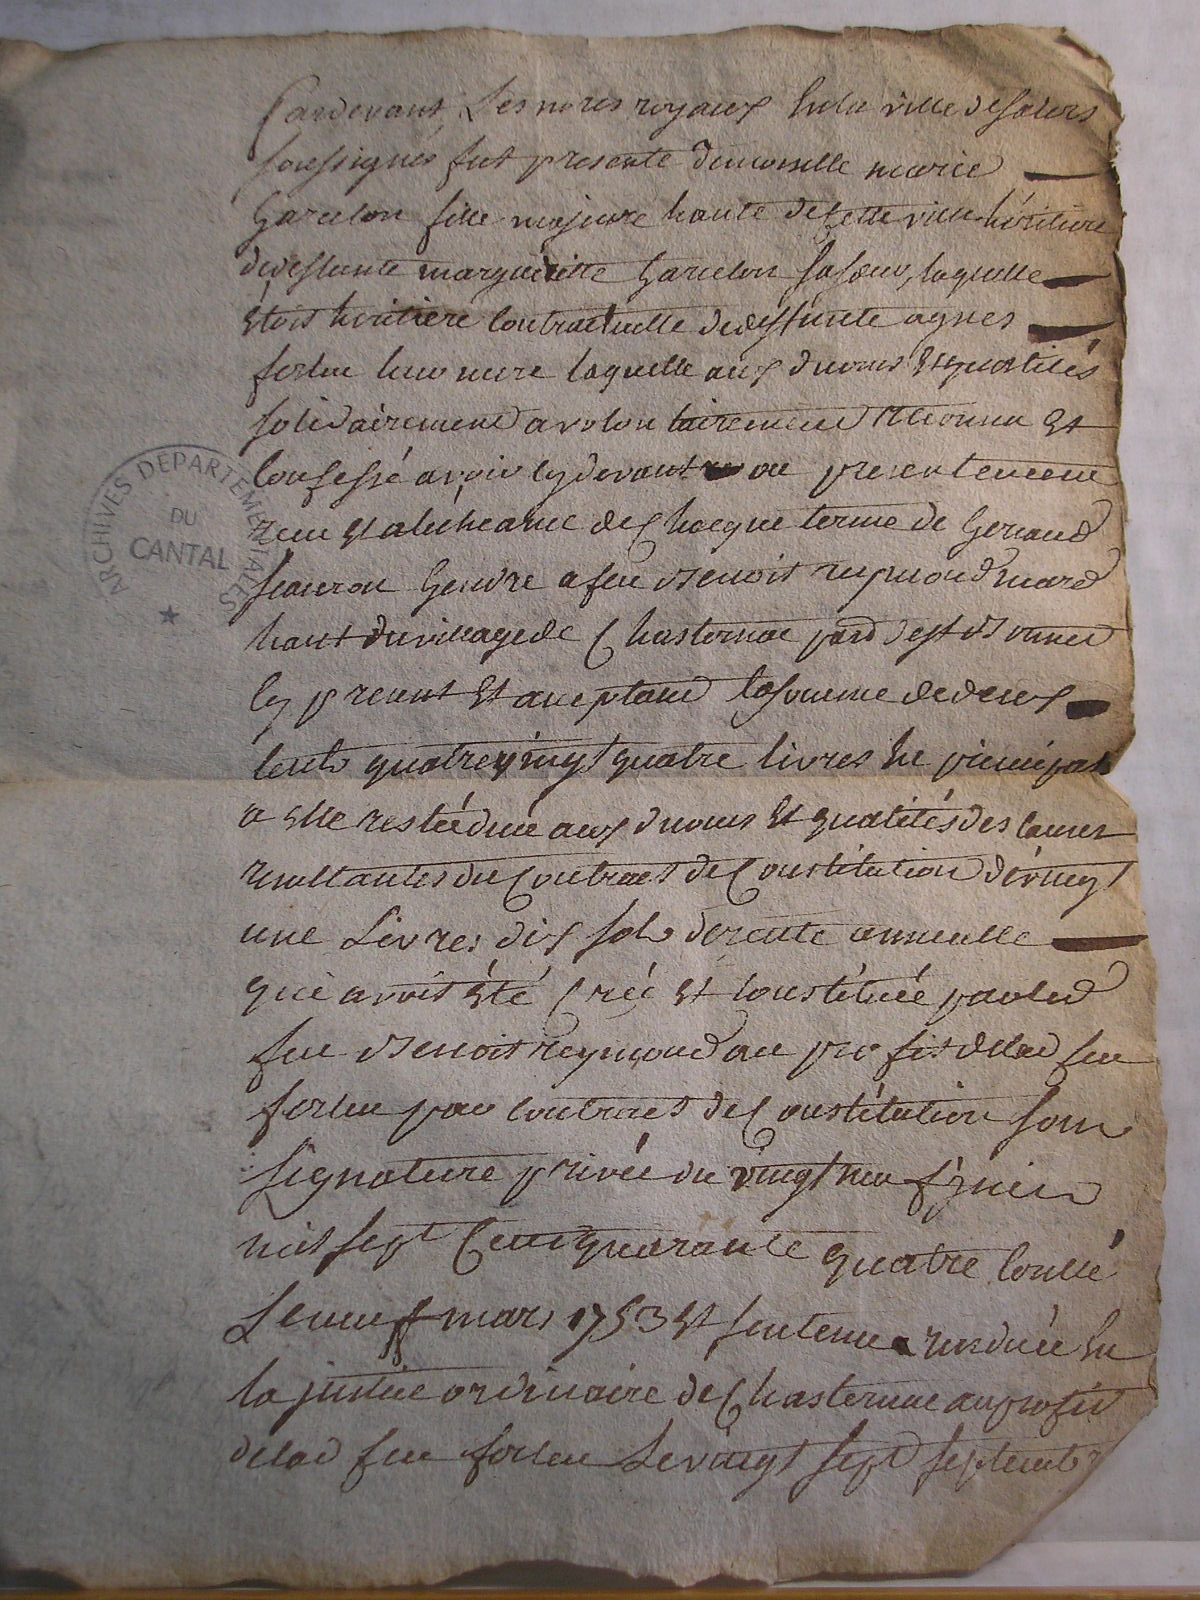 Pardevant Les no.res royaux En la ville de salers
soussignés fut presente demoiselle marie
Garcelon fille majeure hante de Cette ville héritiere
de deffunte margueritte Garcelon sa sœur, laquelle
Etoit héritiere Contractuelle de deffunte agnes
leur mere laquelle aux d noms Et qualités
solidairement a volontairement reconnu Et
Confessé avoir cy devant ou presentement
receu Et a lechéance de Chacque terme de Geraud
Gendre a feu Benoit reymond march
hant du village de Chasternac par.se d'est Bonnet
cy present Et acceptant la somme de deux
Cents quatre vingt quatre livres En principal
a Elle restée due aux d noms Et qualités des Causes
resultantes du Contract de Constitution de vingt
une Livres dix sols de rente annuelle
qui avoit été Créé Et Constituée par led
feu Benoit reymond au profit de lad feu
par Contract de Constitution sous
signature privée du vingt neuf
mil sept Cent quarante quatre Contlé
Le neuf mars 1753 Et sentence rendue En
la justice ordinaire de Chasternac au profit
de lad feu Le vingt sept septembre
ARCHIVES DEPARTEMENTALES
DU
CANTAL